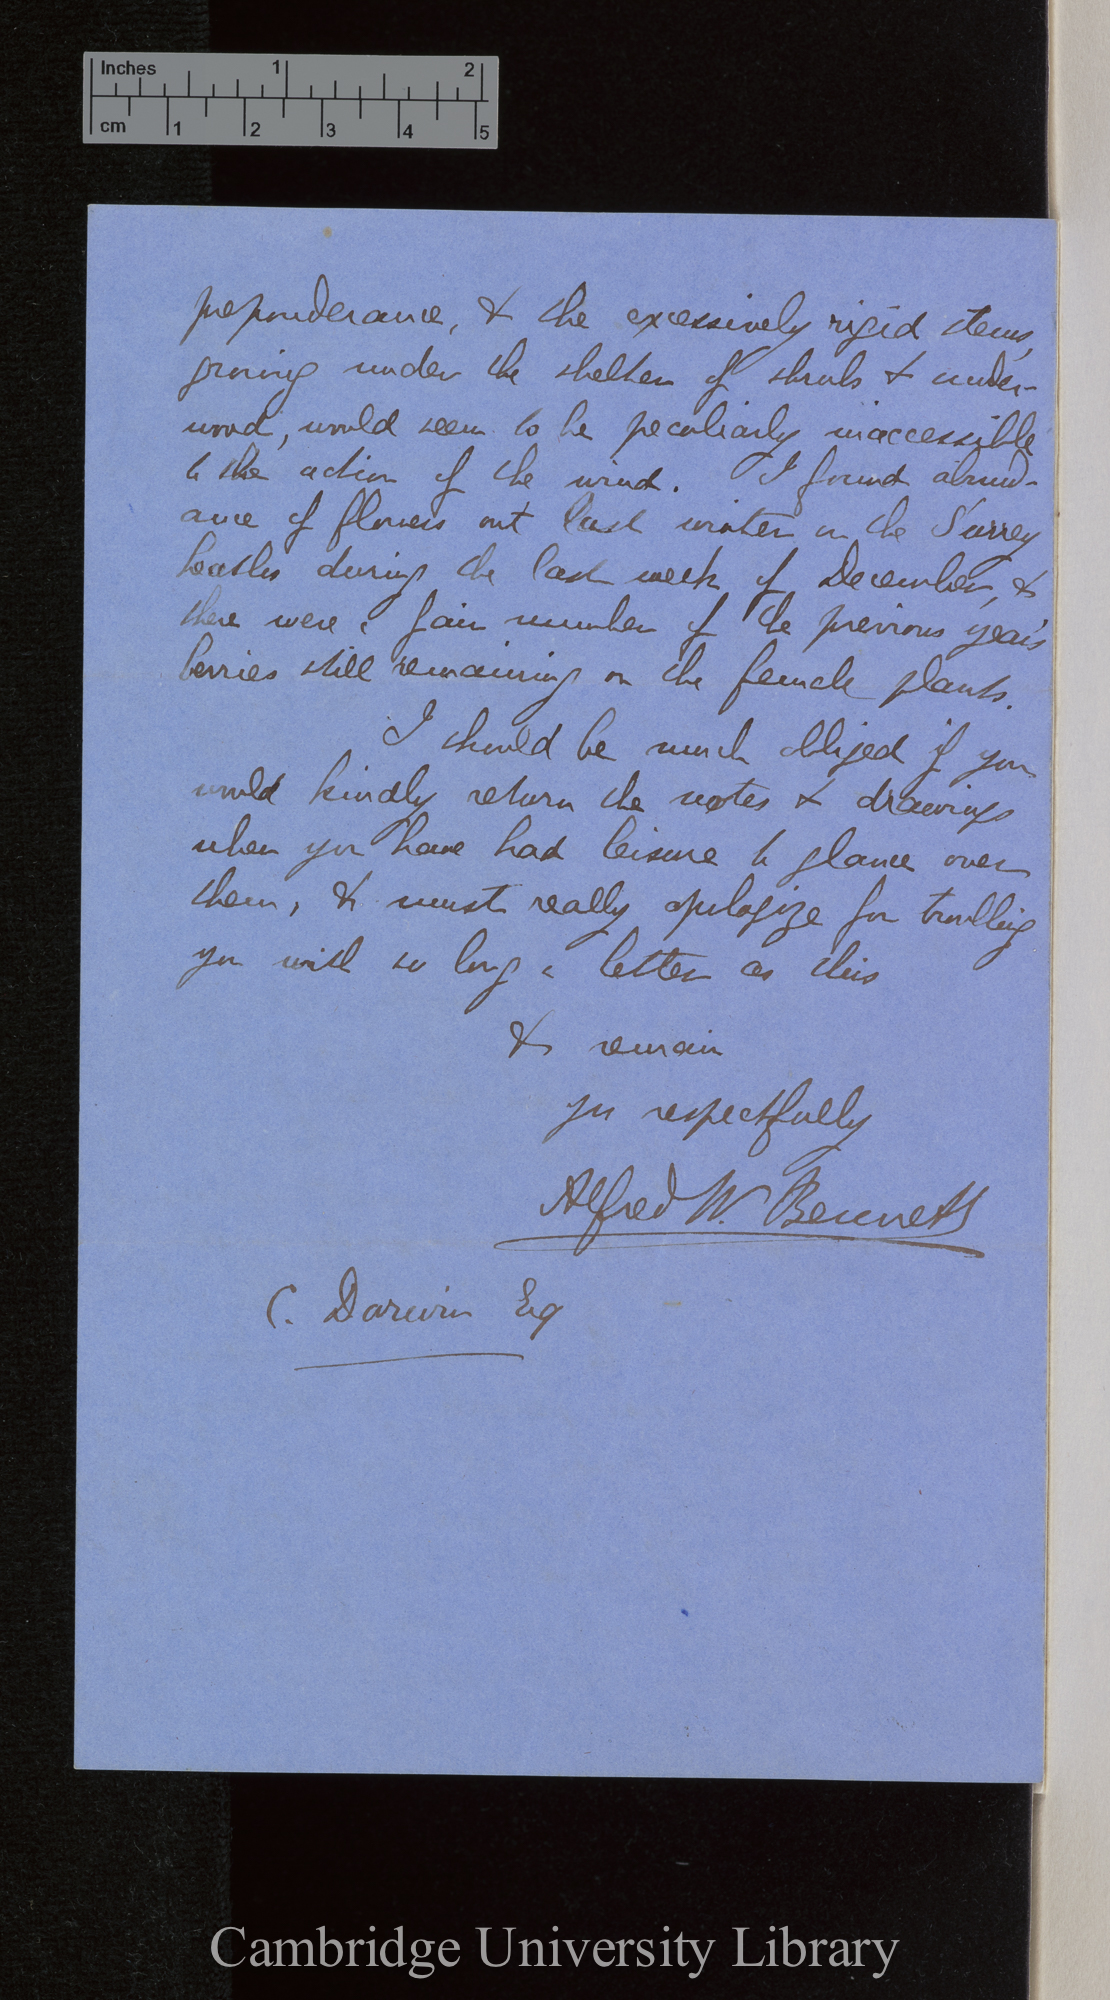 Inches 1 2
cm 1 2 3 4 5
preponderance, & the excessively rigid stems,
growing under the shelter of shrubs & under-
wood, would seem to be peculiarly inaccessible
to the action of the wind. I found abund-
ance of flowers out last winter on the Surrey
heaths during the last week of December, &
there were a fair number of the previous year's
berries still remaining on the female plants.
I should be much obliged if you
would kindly return the notes & drawings
when you have had leisure to glance over
them, & must really apologize for troubling
you with so long a letter as this
& remain
yrs respectfully
Alfred W. Bennett
C. Darwin Esq
Cambridge University Library